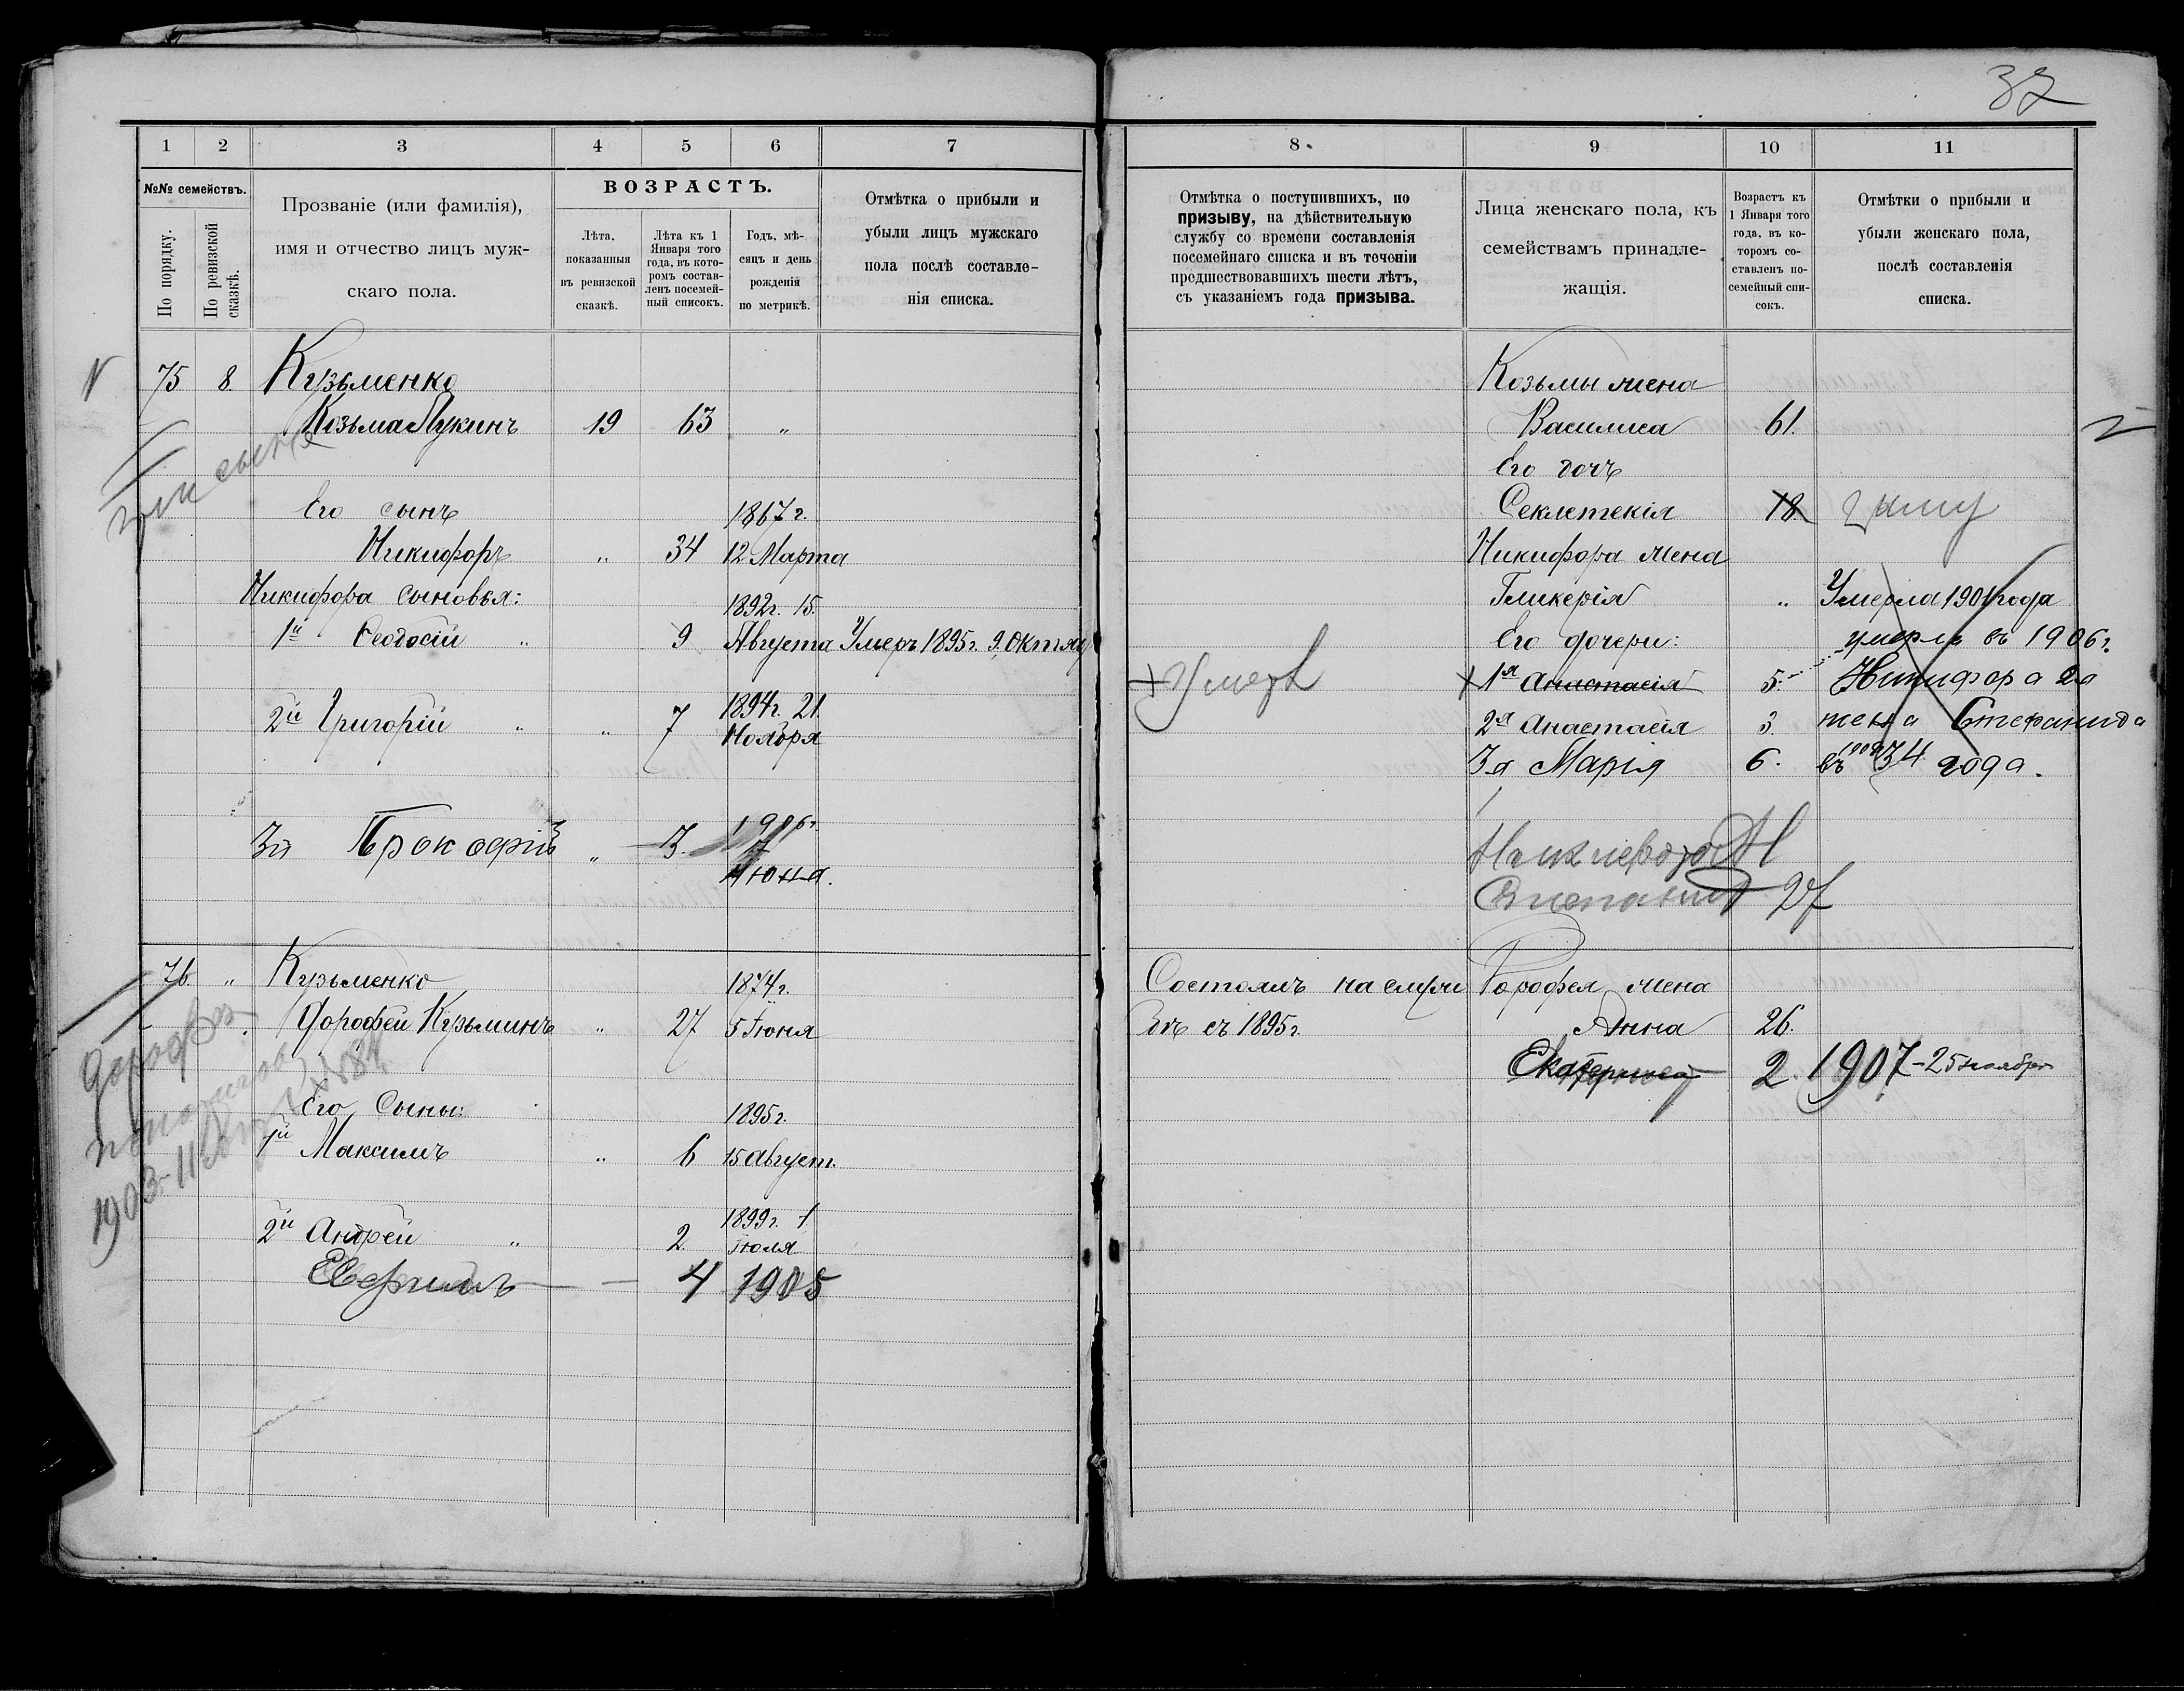 32
1 2 3 4 5 6 7
№№ семействъ.
По порядку.
По ревизской сказкѣ.
Прозваніе (или фамилія),
имя и отчество лицъ муж-
скаго пола.
ВОЗРАСТЪ.
Лѣта,
показанныя
въ ревизской
сказкѣ.
Лѣта къ 1
Января того
года, въ кото-
ромъ состав-
ленъ посемей-
ный списокъ.
Годъ, мѣ-
сяцъ и день
рожденія
по метрикѣ.
Отмѣтка о прибыли и
убыли лицъ мужскаго
пола послѣ составле-
нія списка.
75 8. Кузьменко
Козьма Лукинъ 19 63 "
три сына
Его сынъ 1867 г.
Никифоръ " 34 12 Марта
Никифора сыновья: 1892 г. 15.
1й Феодосій " 9 Августа Умеръ 1895 г. 9. Октяб
2й Григорій " " 7 1894 г. 21.
Ноября
3й Прокофій " 3. 1906 г.
7
Июня.
76. " Кузьменко 1874 г.
Дорофей Кузьминъ " 27 5 Іюня
Дорофѣй
1903-11
Его Сыны: 1895 г.
1й Максимъ " 6 15 август.
2й Андрей " 2. 1899 г. 1
Іюля
Ефимъ 4 1905
8. 9 10 11
Отмѣтка о поступившихъ, по
призыву, на дѣйствительную
службу со времени составленія
посемейнаго списка и въ теченіи
предшествовавшихъ шести лѣтъ,
съ указаніемъ года призыва.
Лица женскаго пола, къ
семействамъ принадле-
жащія.
Возрастъ къ
1 Января того
года, въ ко-
торомъ со-
ставленъ по-
семейный спи-
сокъ.
Отмѣтки о прибыли и
убыли женскаго пола,
послѣ составленія
списка.
Козьмы жена
Василиса 61.
Его дочь
Секлетекія 18.
Никифора жена
Гликерія " Умерла 1901 года
Его дочери: умерла въ 1906 г.
+ Умерл 1я Анастасія 5. Никифора 2а
2я Анастасія 3. жена Степанида
3я Марія 6. въ 1909 34 года.
27
Состоялъ на служ Дорофея жена
бѣ съ 1895 г. Анна 26.
Екатерина 2. 1907 - 25 ноября